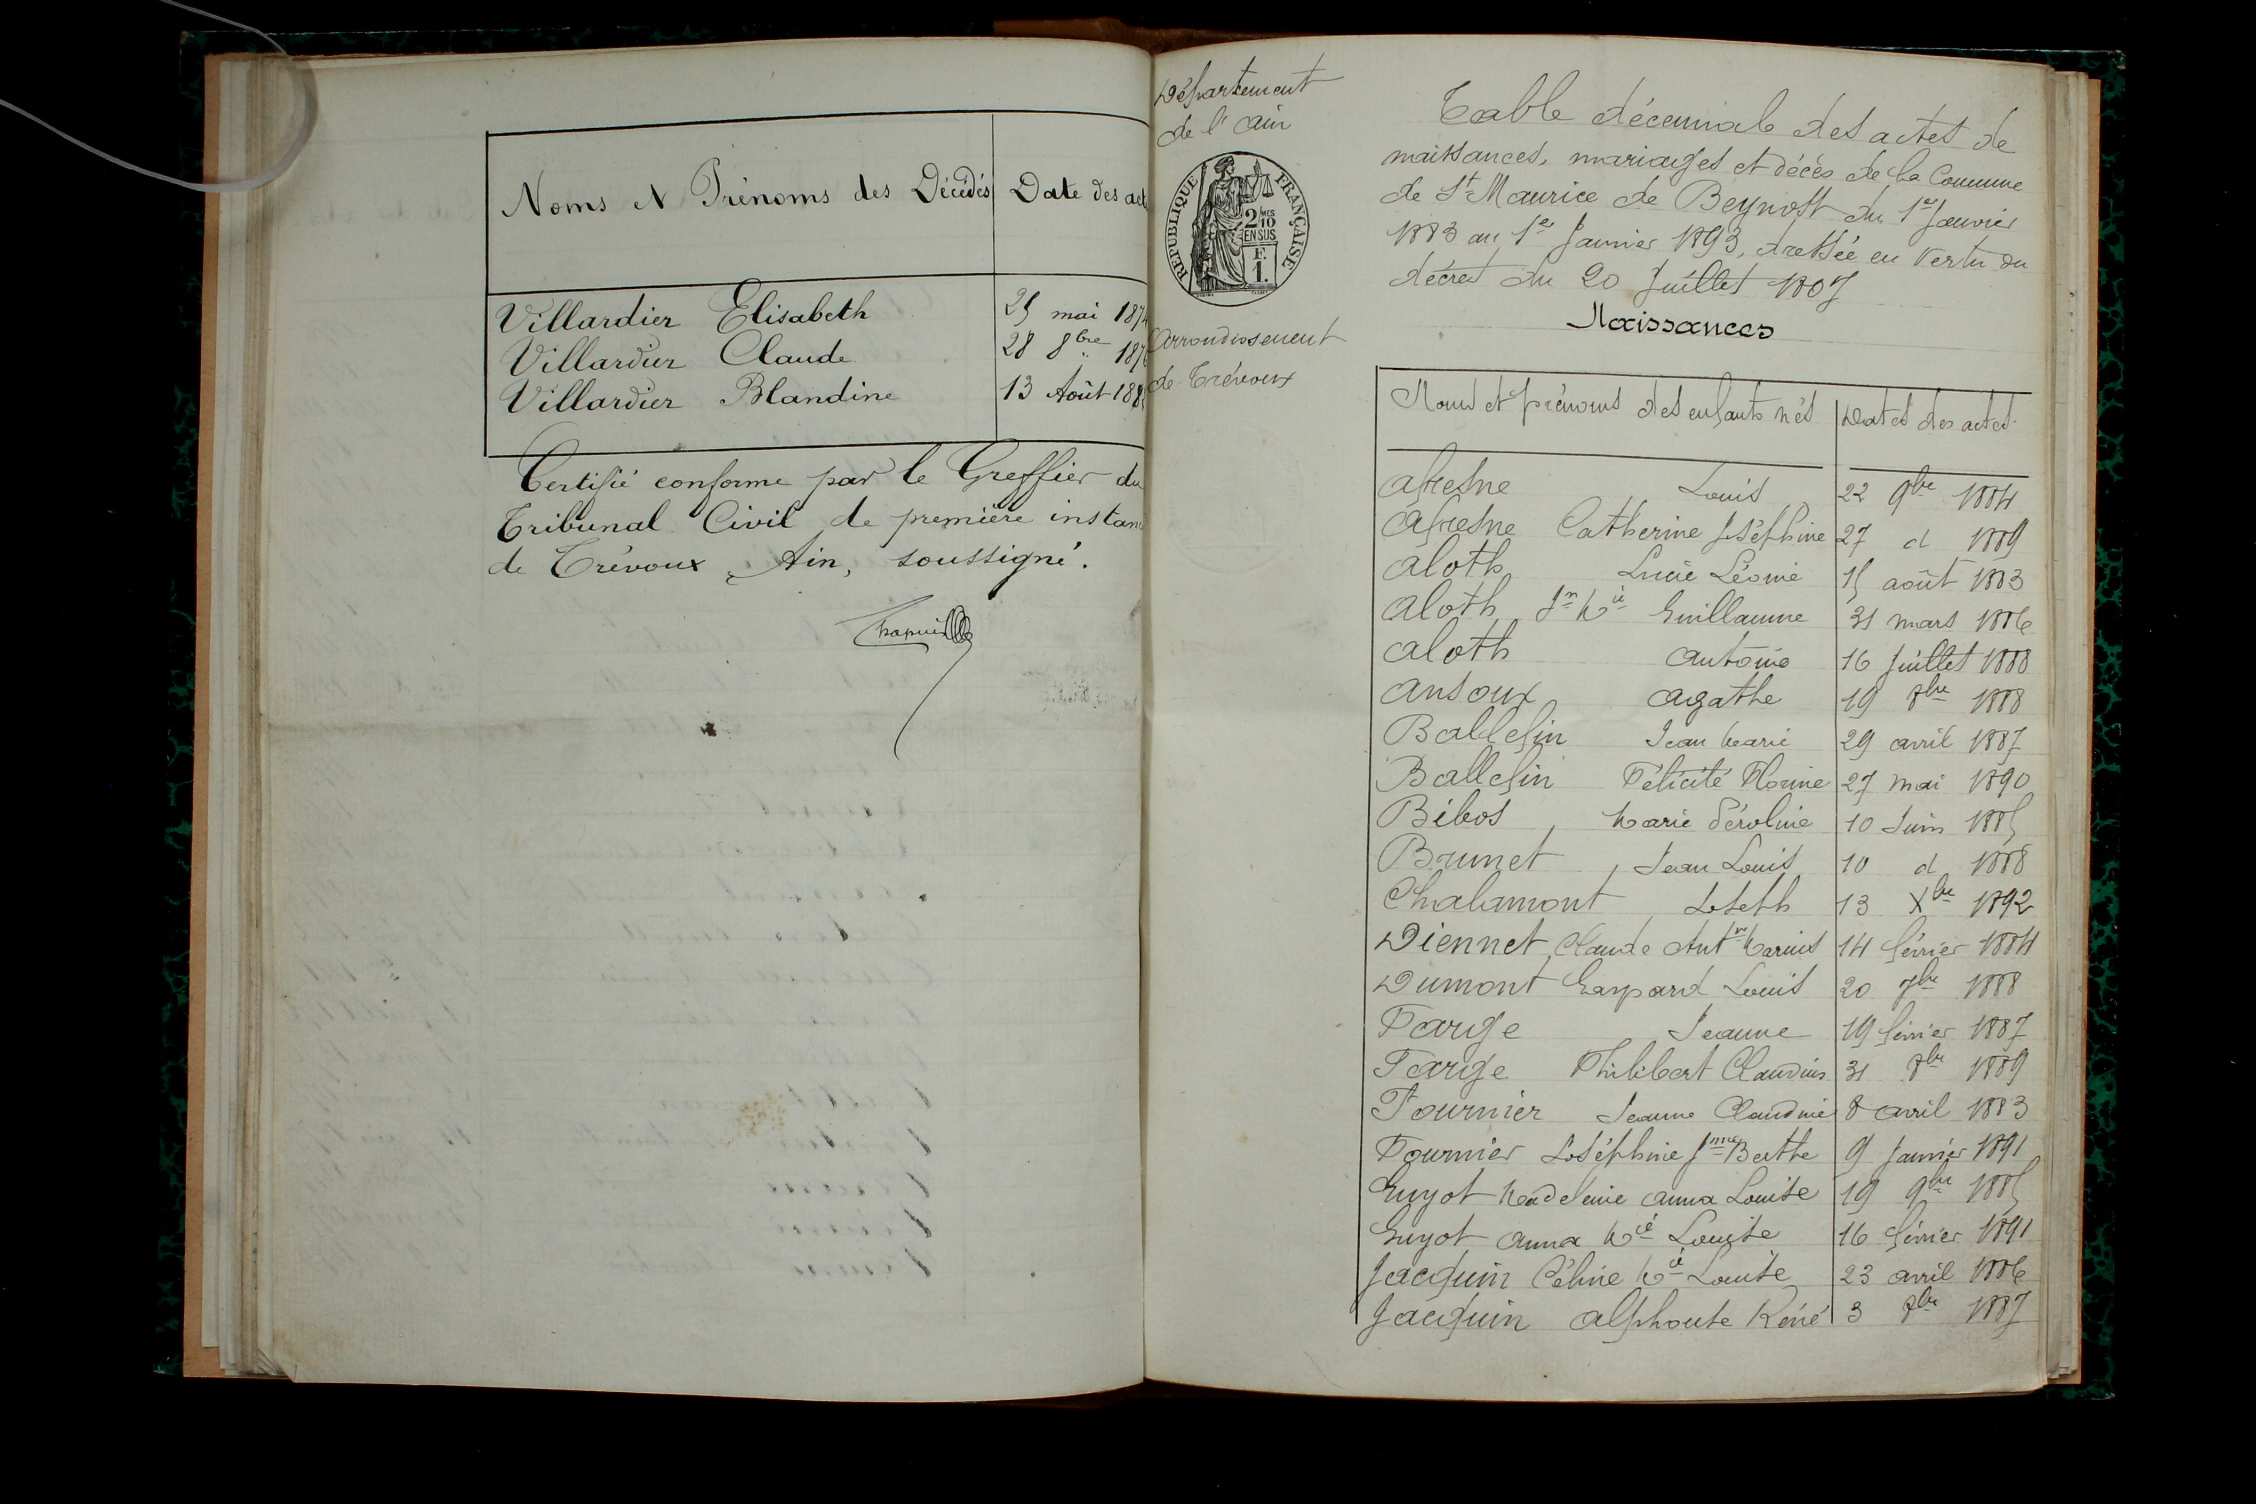 Noms & Prénoms des Décédés Date des act
Villardier Elisabeth 25 mai 187
Villardier Claude 28 8bre 187
Villardier Blandine 13 Août 188
Certifié conforme par le Greffier du
Tribunal Civil de première instanc
de Trévoux, Ain, soussigné.
Département
de l'ain
RÉPUBLIQUE FRANÇAISE
2/10 MES
EN SUS
F.
1.
Arrondissement
de Trévoux
Table décennale des actes de
naissances, mariages et décès de la Commune
de St Maurice de Beynost du 1er Janvier
1883 au 1er Janvier 1893, dressée en vertu du
décret du 20 Juillet 1807
Naissances
Noms et prénoms des enfants nés Dates des actes
Afresne Louis 22 9bre 1884
Afresne Catherine Joséphine 27 d 1889
Aloth Lucie Léonie 15 août 1883
Aloth Jn Mie Guillaume 31 mars 1886
Aloth Antoine 16 Juillet 1888
Ansoux Agathe 19 8bre 1888
Ballefin Jean Marie 29 avril 1887
Ballefin Félicité Florine 27 mai 1890
Bibos Marie Péroline 10 Juin 1885
Brunet Jean Louis 10 d 1888
Chalamont Joseph 13 Xbre 1892
Diennet Claude Antne Marius 14 février 1884
Dumont Gaspard Louis 20 7bre 1888
Farge Jeanne 19 février 1887
Farge Philibert Claudius 31 8bre 1889
Fournier Jeanne Claudine 8 avril 1883
Fournier Joséphine Jme Berthe 9 Janvier 1891
Guyot Madeleine Anna Louise 19 9bre 1885
Guyot Anna Mie Louise 16 février 1891
Jacquin Céline Mie Louise 23 avril 1886
Jacquin Alphonse Réné 3 8bre 1887